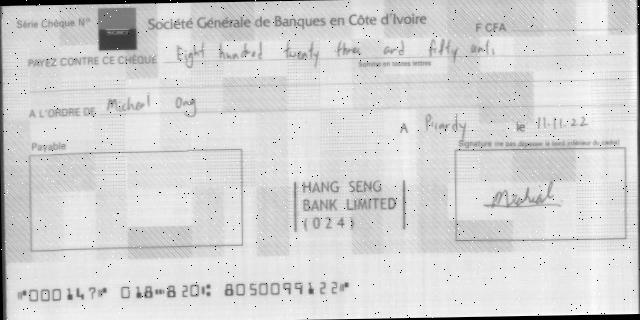 Série Chèque N°
Société Générale de Banques en Côte d'Ivoire
F CFA
PAYEZ CONTRE CE CHÈQUE Eight hundred twenty three and fifty
Somme en toutes lettres
A L'ORDRE DE Micheal Ong
A Picardy le 11.11.22
Payable
Signature (ne pas dépasser le bord inférieur du cadre)
HANG SENG
BANK LIMITED
(024)
Micheal
⑈000147⑈ 018⑉820⑆ 8050099122⑈